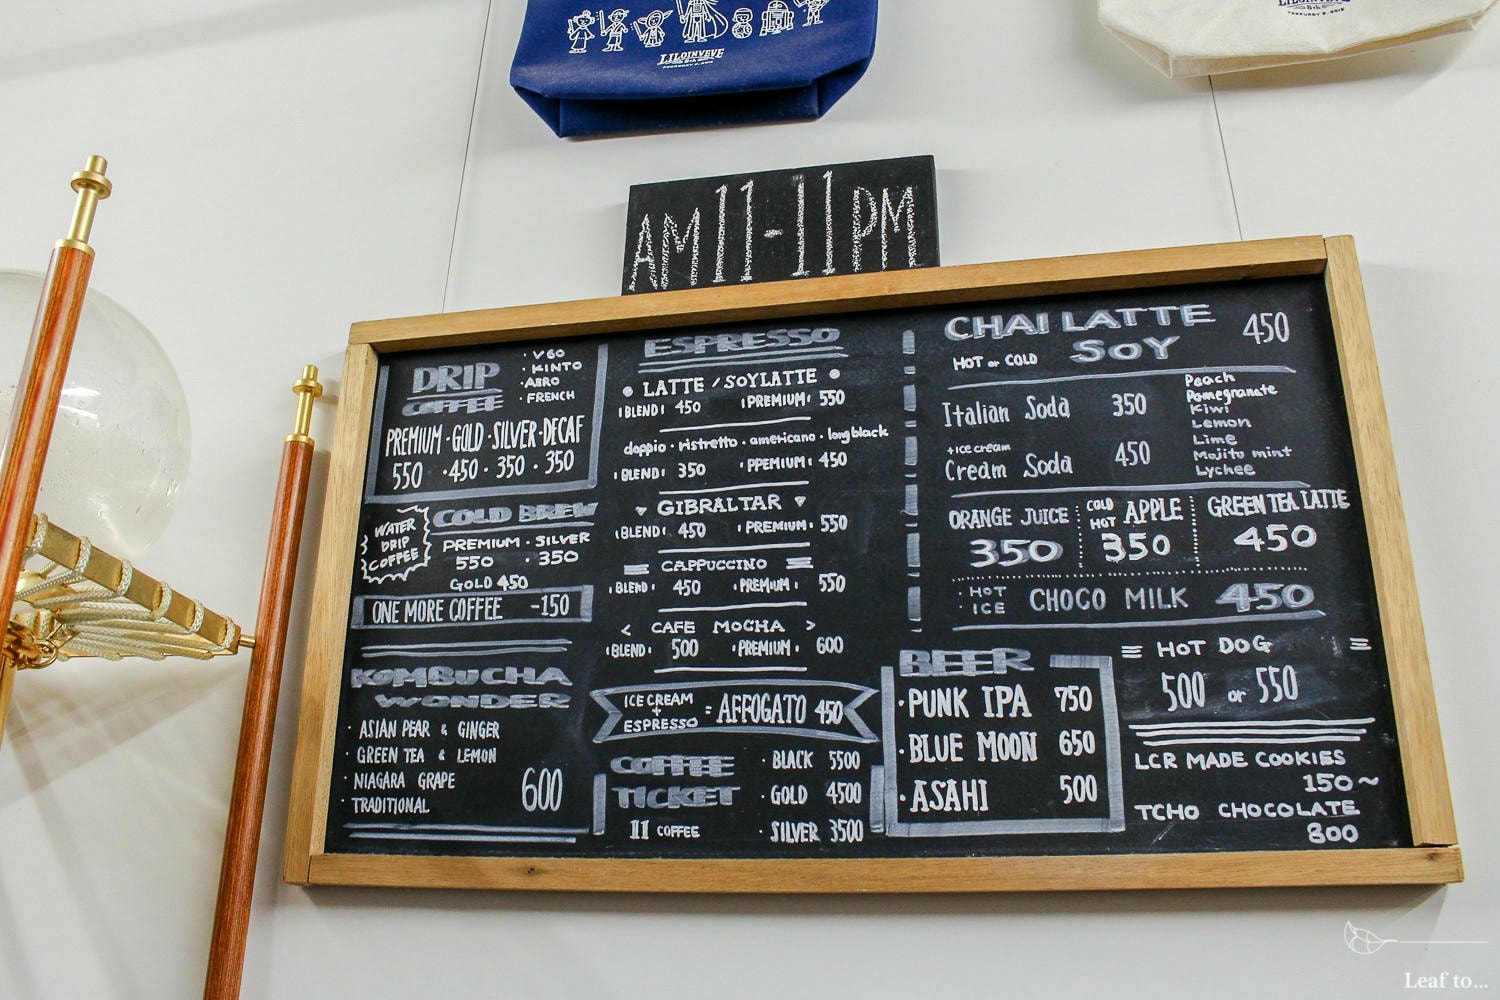 LILOINVEVE
8th
FEBRUARY 8, 2015
LILOINVEVE
8th
AM11-11PM
DRIP
COFFEE
· V60
· KINTO
· AERO
· FRENCH
PREMIUM · GOLD · SILVER · DECAF
550 · 450 · 350 · 350
WATER
DRIP
COFFEE
COLD BREW
PREMIUM · SILVER
550 · 350
GOLD 450
ONE MORE COFFEE -150
KOMBUCHA
WONDER
· ASIAN PEAR & GINGER
· GREEN TEA & LEMON
· NIAGARA GRAPE
· TRADITIONAL
600
ESPRESSO
• LATTE / SOYLATTE •
BLEND 450 PREMIUM 550
doppio · ristretto · americano · longblack
BLEND 350 PPEMIUM 450
GIBRALTAR
BLEND 450 PREMIUM 550
CAPPUCCINO
BLEND 450 PREMIUM 550
< CAFE MOCHA >
BLEND 500 PREMIUM 600
ICE CREAM
+
ESPRESSO
= AFFOGATO 450
COFFEE
TICKET
11 COFFEE
· BLACK 5500
· GOLD 4500
· SILVER 3500
CHAI LATTE 450
HOT or COLD SOY
Italian Soda 350
+ice cream
Cream Soda 450
Peach
Pomegranate
Kiwi
Lemon
Lime
Mojito mint
Lychee
ORANGE JUICE
350
COLD
HOT APPLE
350
GREEN TEA LATTE
450
· HOT
· ICE
CHOCO MILK 450
BEER
· PUNK IPA 750
· BLUE MOON 650
· ASAHI 500
HOT DOG
500 or 550
LCR MADE COOKIES
150~
TCHO CHOCOLATE
800
Leaf to...